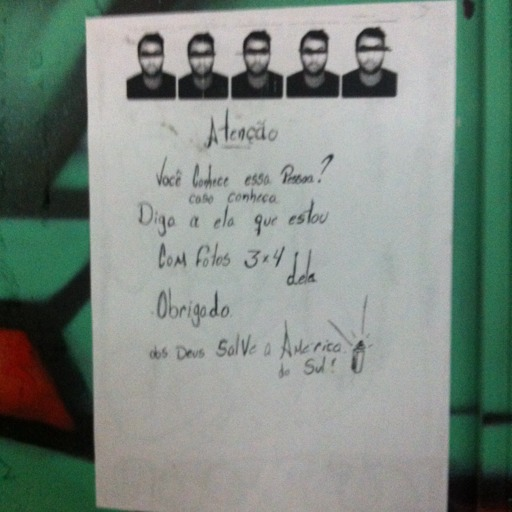 Atenção
Você Conhece essa Pessoa?
caso conheça
Diga a ela que estou
Com fotos 3x4 dela
Obrigado.
obs Deus Salve a América
do Sul!